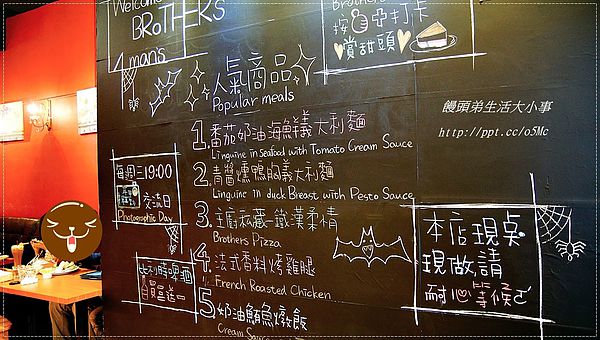 Welcome
BRoTHERS
4 man's
人氣商品
Popular meals
1.番茄奶油海鮮義大利麵
Linguine in seafood with Tomato Cream Sauce
2.青醬燻鴨胸義大利麵
Linguine in duck Breast with Pesto Sauce
3.主廚私藏-鐵漢柔情
Brothers Pizza
4.法式香料烤雞腿
French Roasted Chicken
5.奶油鮪魚燉飯
Cream Sauce
每週三19:00
交流日
Photographic Day
比利時啤酒
買一送一
Brothers
按打卡
賞甜頭
饅頭弟生活大小事
http://ppt.cc/o5Mc
本店現桌
現做請
耐心等候